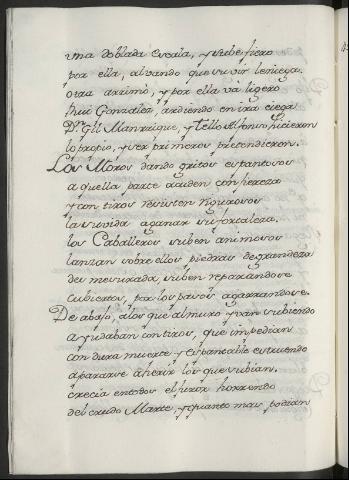 una doblada escala, y sube fiero
por ella, alvando que suvir leniega.
otra arrimó, y por ella va ligero
Rui Gonzalez, ardiendo en ira ciega
Dn. Gil Manrrique, y Tello Alfonso hicieron
lo propio, y ser primeros pretendieron.
Los Moros dando gritos espantosos
a quella parte acuden con fiereza
y con tiros resisten rigurosos
la suvida a ganar su fortaleza.
los Caballeros suben animosos
lanzan sobre ellos piedras de grandeza
desmesurada, suben reparandose
cubiertos, por los pasos agarrandose.
De abajo, a los que al muro yvan subiendo
ayudaban con tiros, que impedian
con dura muerte y espantable estruendo
apararse a herir los que subian.
crecia en todos el furor horrendo
del crudo Marte, y quanto mas podian